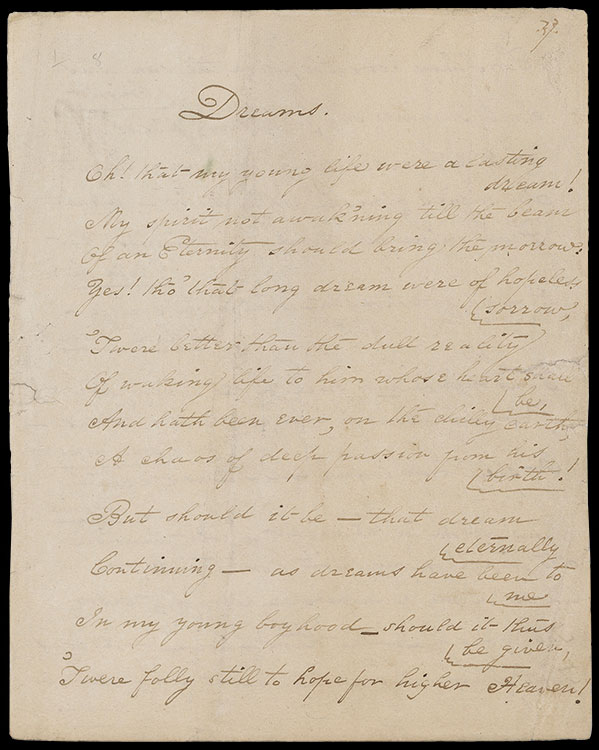 39.
1 8
Dreams.
Oh! that my young life were a lasting
dream!
My spirit not awak'ning till the beam
Of an Eternity should bring the morrow:
Yes! tho' that long dream were of hopeless
sorrow,
'Twere better than the dull reality
Of waking life to him whose heart shall
be,
And hath been ever, on the chilly earth,
A chaos of deep passion from his
birth!
But should it be — that dream
eternally
Continuing — as dreams have been to
me
In my young boyhood — should it thus
be given,
'Twere folly still to hope for higher Heaven!